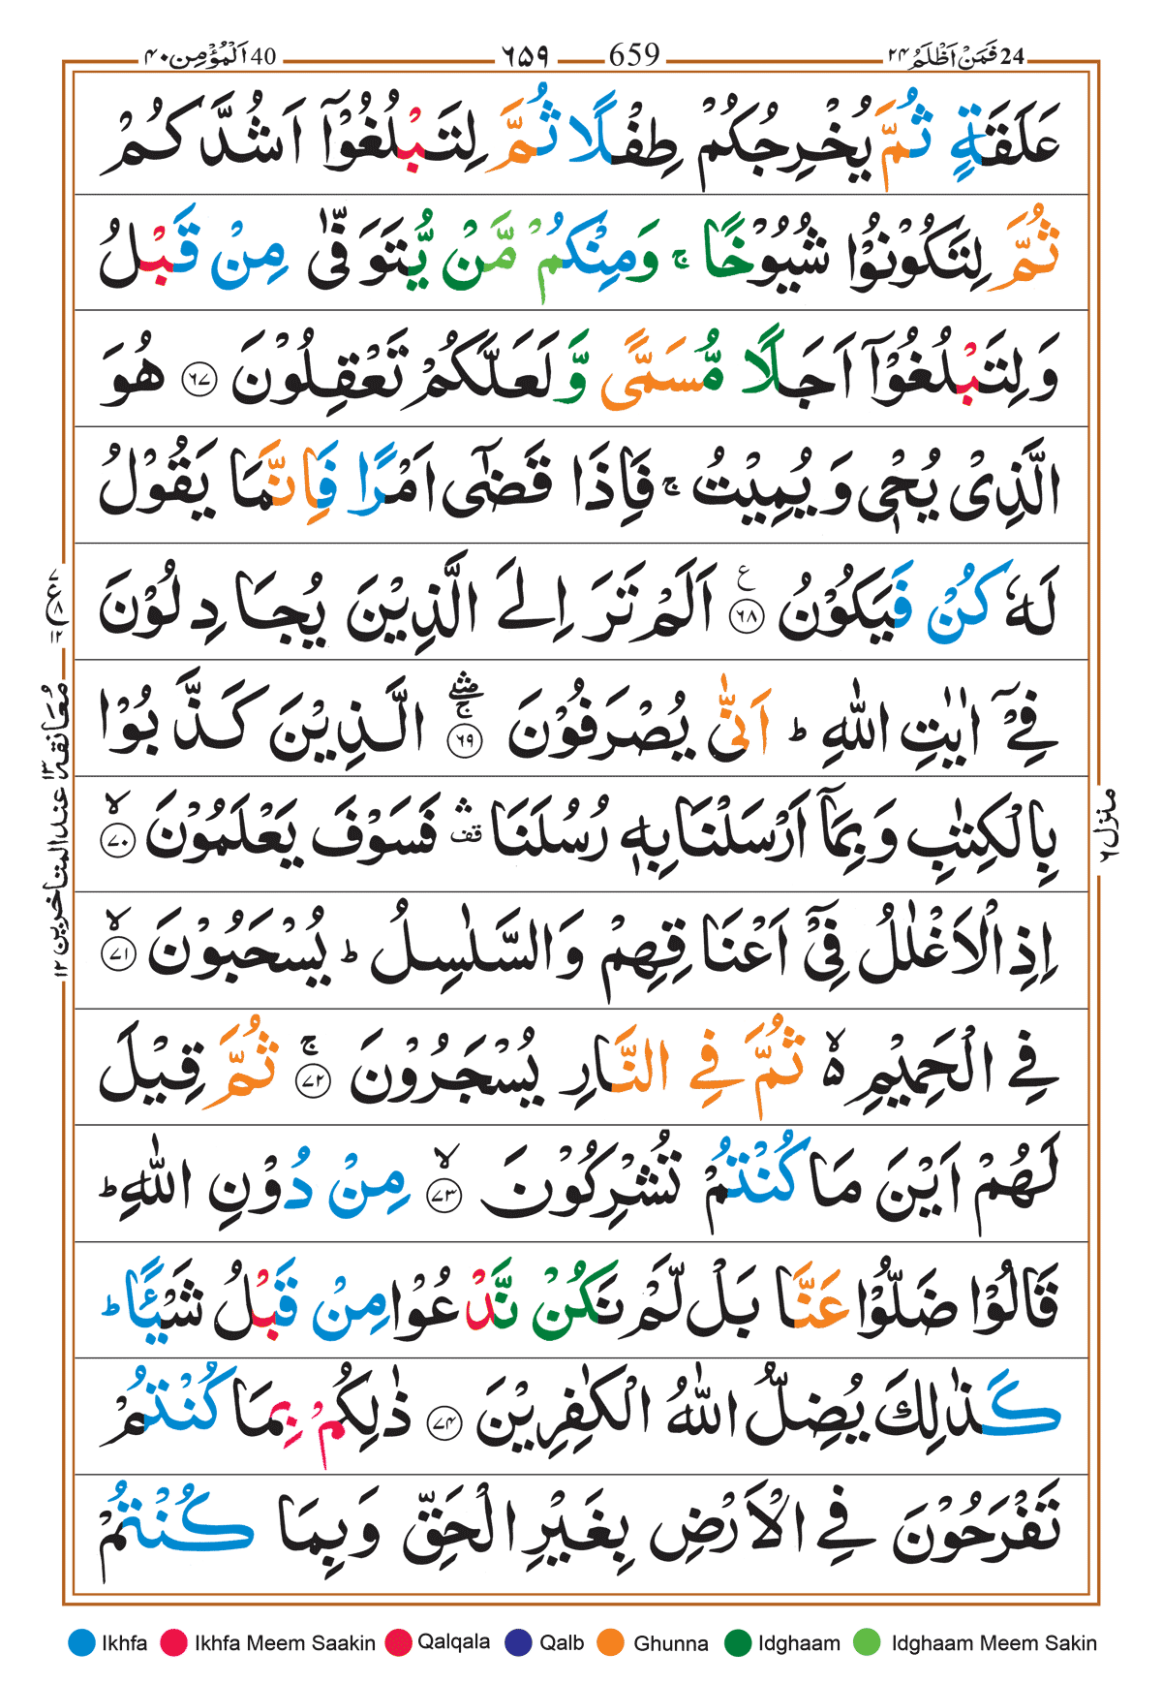 40 اَلْمُؤْمِن ۴۰
۶۵۹ 659
24 فَمَنْ اَظْلَمُ ۲۴
عَلَقَةٍ ثُمَّ يُخْرِجُكُمْ طِفْلًا ثُمَّ لِتَبْلُغُوْۤا اَشُدَّكُمْ
ثُمَّ لِتَكُوْنُوْا شُيُوْخًا ۚ وَمِنْكُمْ مَّنْ يُّتَوَفّٰى مِنْ قَبْلُ
وَلِتَبْلُغُوْۤا اَجَلًا مُّسَمًّى وَّلَعَلَّكُمْ تَعْقِلُوْنَ ۶۷ هُوَ
الَّذِىْ يُحْىٖ وَيُمِيْتُ ۚ فَاِذَا قَضٰٓى اَمْرًا فَاِنَّمَا يَقُوْلُ
لَهٗ كُنْ فَيَكُوْنُ ۶۸ ع اَلَمْ تَرَ اِلَى الَّذِيْنَ يُجَادِلُوْنَ
فِىْۤ اٰيٰتِ اللّٰهِ ؕ اَنّٰى يُصْرَفُوْنَ ۶۹ ۛۚ الَّذِيْنَ كَذَّبُوْا
بِالْكِتٰبِ وَبِمَاۤ اَرْسَلْنَا بِهٖ رُسُلَنَا ۛ قف فَسَوْفَ يَعْلَمُوْنَ ۷۰ ۙ
اِذِ الْاَغْلٰلُ فِىْۤ اَعْنَاقِهِمْ وَالسَّلٰسِلُ ؕ يُسْحَبُوْنَ ۷۱ ۙ
فِى الْحَمِيْمِ ۙ۬ ثُمَّ فِى النَّارِ يُسْجَرُوْنَ ۷۲ ۚ ثُمَّ قِيْلَ
لَهُمْ اَيْنَ مَا كُنْتُمْ تُشْرِكُوْنَ ۷۳ ۙ مِنْ دُوْنِ اللّٰهِ ؕ
قَالُوْا ضَلُّوْا عَنَّا بَلْ لَّمْ نَكُنْ نَّدْعُوْا مِنْ قَبْلُ شَيْـًٔا ؕ
كَذٰلِكَ يُضِلُّ اللّٰهُ الْكٰفِرِيْنَ ۷۴ ذٰلِكُمْ بِمَا كُنْتُمْ
تَفْرَحُوْنَ فِى الْاَرْضِ بِغَيْرِ الْحَقِّ وَبِمَا كُنْتُمْ
مُعَانقة ۱۳ عند المتاخرين ۱۲
منزل ۶
Ikhfa Ikhfa Meem Saakin Qalqala Qalb Ghunna Idghaam Idghaam Meem Sakin